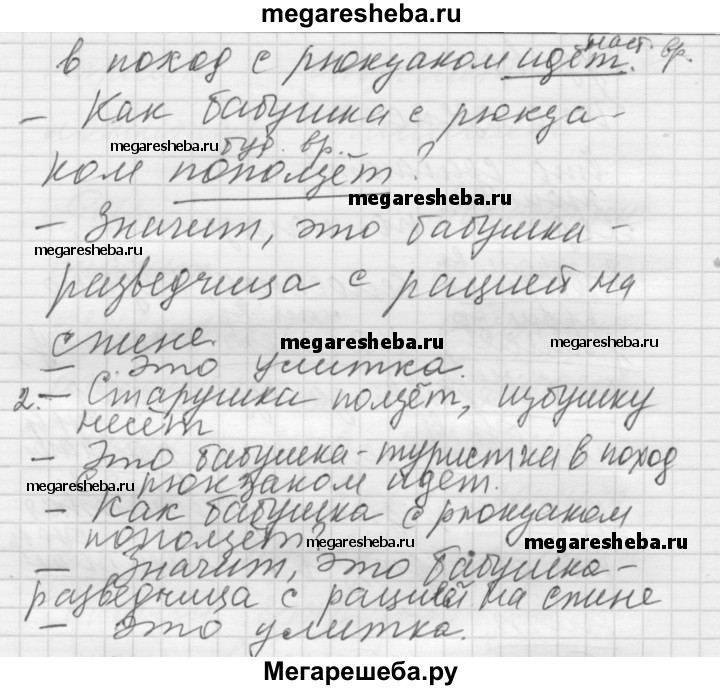 megaresheba.ru
наст. вр.
в поход с рюкзаком идёт.
– Как бабушка с рюкза-
megaresheba.ru
буд. вр.
ком поползёт?
megaresheba.ru
– Значит, это бабушка-
megaresheba.ru
разведчица с рацией на
спине.
megaresheba.ru
– Это улитка.
2. – Старушка ползёт, избушку
несёт
– Это бабушка-туристка в поход
megaresheba.ru
с рюкзаком идёт.
– Как бабушка с рюкзаком
megaresheba.ru
поползёт?
megaresheba.ru
– Значит, это бабушка-
разведчица с рацией на спине
megaresheba.ru
– Это улитка.
Мегарешеба.ру